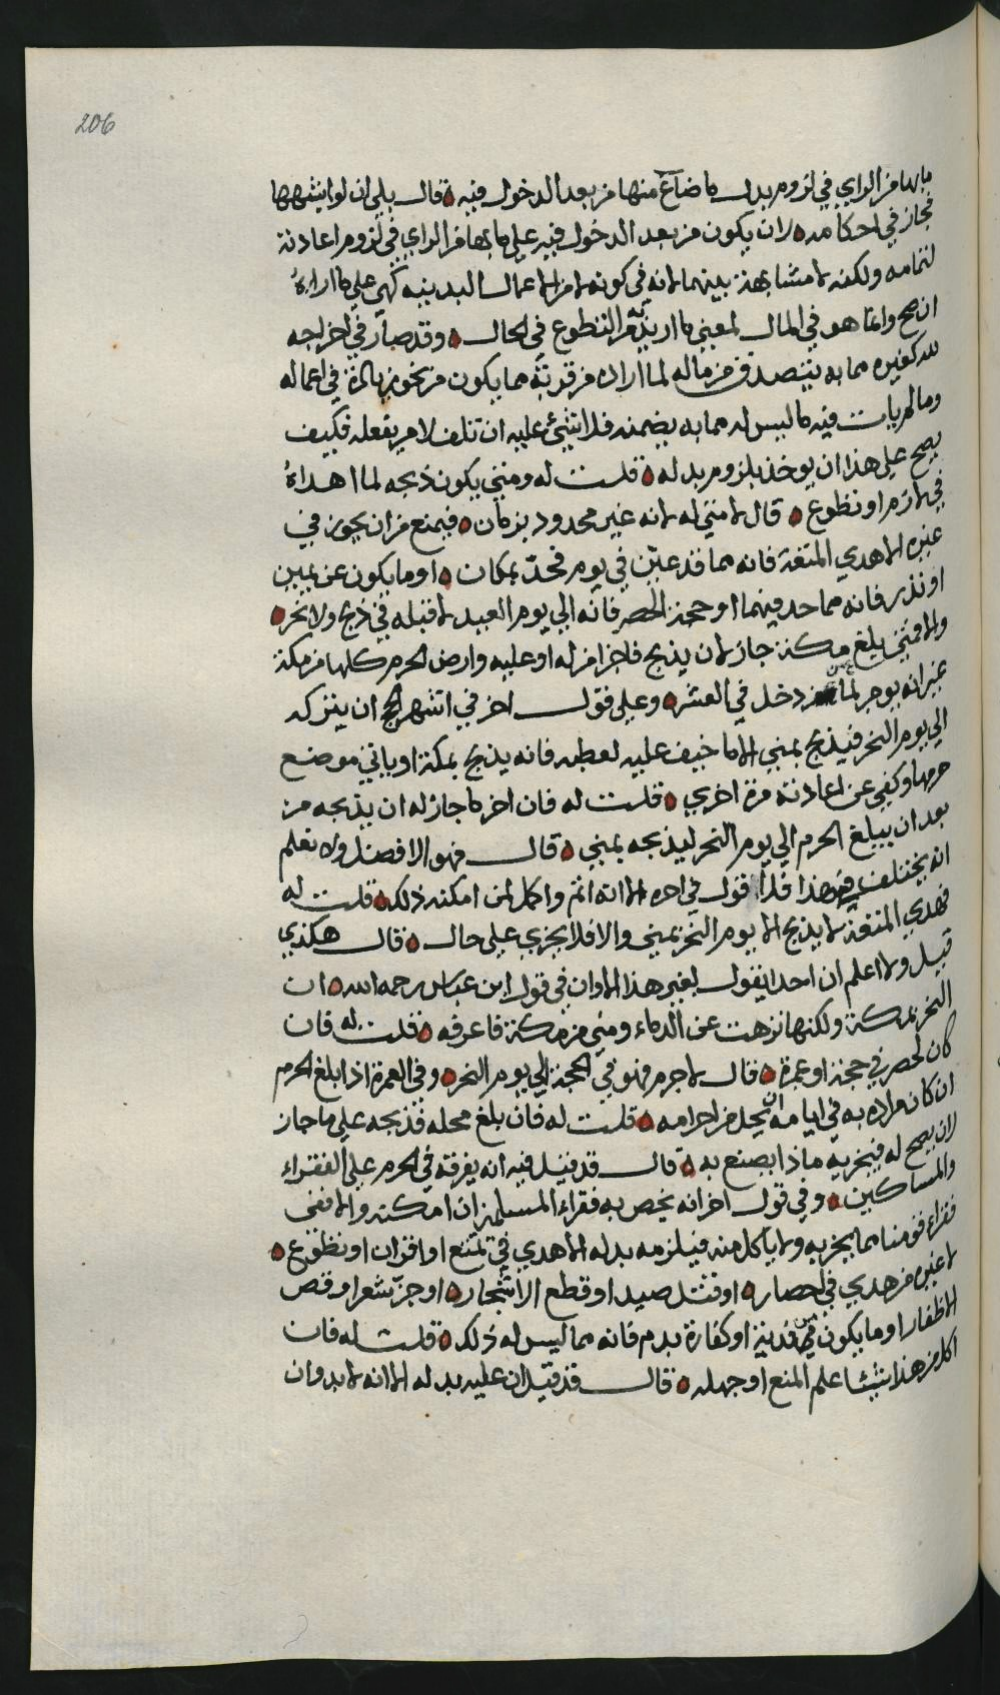 206
ما بها من الراي في لزوم بدل ما ضاع منها من بعد الدخول فيه قال بلى ان لو اشبهها
فجاز في احكامه لان يكون من بعد الدخول فيه على ما بها من الراي في لزوم اعادته
لتمامه ولكنه لا مشابهة بينهما لانه في كونه لا من الاعمال البدنية كهي على ما اراه
ان صح وانما هو في المال لمعنى ما اريد به التطوع في الحال وقد صار في اخراجه
لله كغيره مما به يتصدق من ماله لما اراده من قربة مما يكون من نحو بالذة في اعماله
وما لم يات فيه ما ليس له مما به يضمنه فلا شيء عليه ان تلف لامر بفعله فكيف
يصح على هذا ان يوخذ بلزوم بدله قلت له ومتى يكون ذبحه لما اهداه
في لازم او تطوع قال لا متى له لانه غير محدود بزمان فيمنع من ان يجوز في
غيره الا هدي المتعة فانه مما قد عين في يوم فحد بمكان او ما يكون عن يمين
او نذر فانه مما حد فيهما او حجة الحصر فانه الى يوم العيد لا قبله في ذبح ولا نحر
والا فمتى بلغ مكة جاز لان يذبح فاجزا من له او عليه وارض الحرم كلها من مكة
غير انه يومر لما من دخل في العشر وعلى قول اخر في اشهر الحج ان يتركه
الى يوم النحر فيذبح بمنى الا ما خيف عليه لعطبه فانه يذبح بمكة او ياتي موضع
حرمها وكفى عن اعادته مرة اخرى قلت له فان اخر ما جاز له ان يذبحه من
بعد ان يبلغ الحرم الى يوم النحر ليذبحه بمنى قال فهو الافضل ولا نعلم
انه يختلف في هذا فلا قول في اجره الا انه اتم واكمل لمن امكنه ذلك قلت له
فهدي المتعة لا يذبح الا يوم النحر بمنى والا فلا يجزي على حال قال هكذي
قيل ولا اعلم ان احدا يقول بغير هذا الا وان في قول ابن عباس رحمه الله ان
النحر بمكة ولكنها نزهت عن الدماء ومنى من مكة فاعرفه قلت له فان
كان لحصر في حجة او عمرة قال لا جرم فهو في الحجة الى يوم النحر وفي العمرة اذا بلغ الحرم
ان كان مراده به في ايامه ان يحل من احرامه قلت له فان بلغ محله فذبحه على ما جاز
لان يصح له فيجزيه ماذا يصنع به قال قد قيل فيه انه يفرقه في الحرم على الفقراء
والمساكين وفي قول اخر انه يخص به فقراء المسلمين ان امكنه والا ففي
فقراء قومنا مما يجزيه ولا ياكل منه فيلزمه بدله الا هدي في تمتع او اقران او تطوع
لا غيره من هدي في احصار او قتل صيد او قطع الاشجار او جز شعر او قص
الاظفار او ما يكون في فدية او كفارة بدم فانه مما ليس له ذلك قلت له فان
اكل من هذا شيئا علم المنع او جهله قال قد قيل ان عليه بدله الا انه لا بد وان